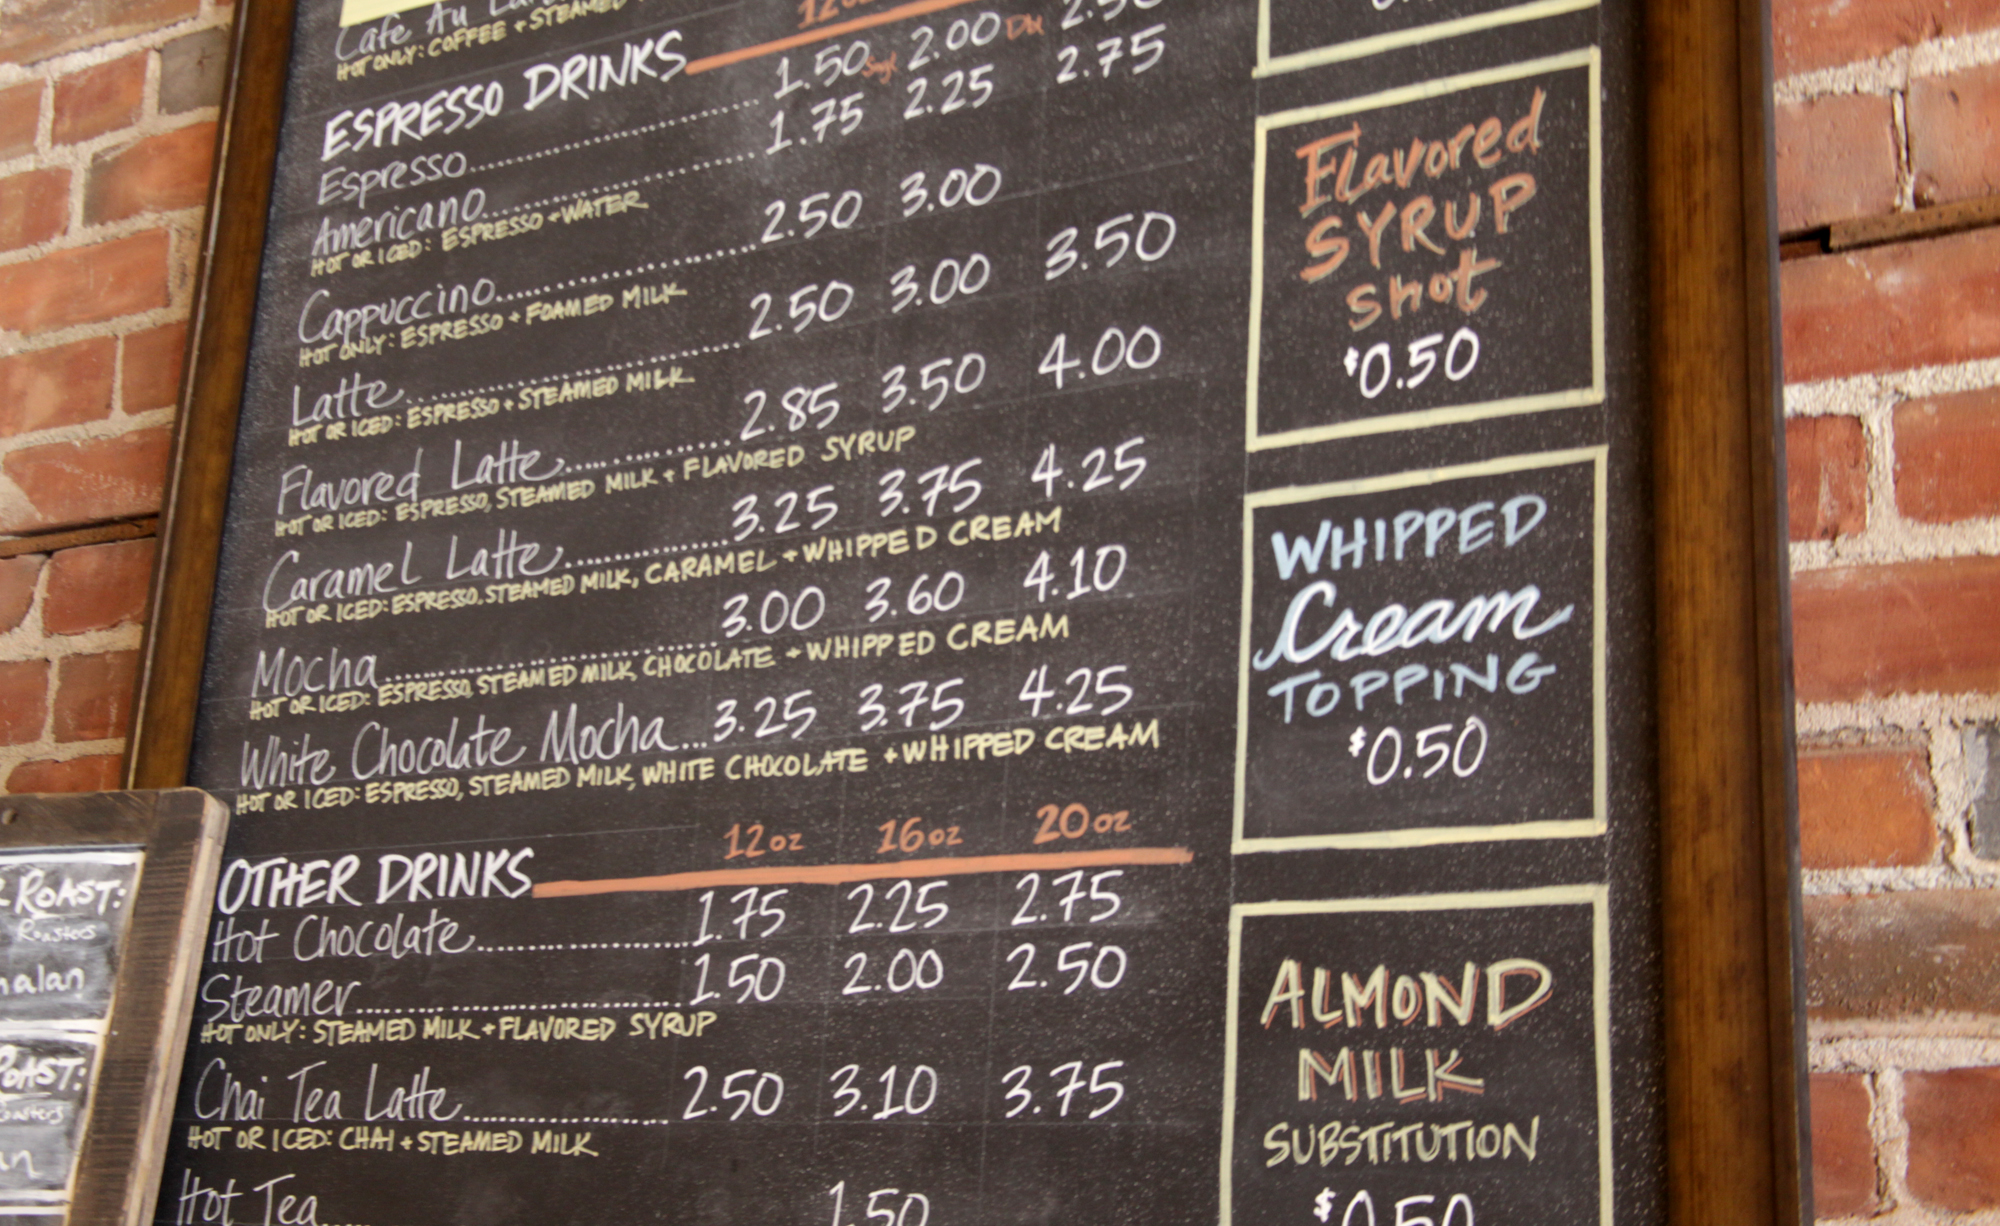 Cafe Au
HOT ONLY: COFFEE + STEAMED
ESPRESSO DRINKS
Espresso 1.50 Sngl 2.00 Dbl
Americano 1.75 2.25 2.75
HOT OR ICED: ESPRESSO + WATER
Cappuccino 2.50 3.00
HOT ONLY: ESPRESSO + FOAMED MILK
Latte 2.50 3.00 3.50
HOT OR ICED: ESPRESSO + STEAMED MILK
Flavored Latte 2.85 3.50 4.00
HOT OR ICED: ESPRESSO, STEAMED MILK + FLAVORED SYRUP
Caramel Latte 3.25 3.75 4.25
HOT OR ICED: ESPRESSO, STEAMED MILK, CARAMEL + WHIPPED CREAM
Mocha 3.00 3.60 4.10
HOT OR ICED: ESPRESSO, STEAMED MILK, CHOCOLATE + WHIPPED CREAM
White Chocolate Mocha...3.25 3.75 4.25
HOT OR ICED: ESPRESSO, STEAMED MILK, WHITE CHOCOLATE + WHIPPED CREAM
12oz 16oz 20oz
OTHER DRINKS
Hot Chocolate 1.75 2.25 2.75
Steamer 1.50 2.00 2.50
HOT ONLY: STEAMED MILK + FLAVORED SYRUP
Chai Tea Latte 2.50 3.10 3.75
HOT OR ICED: CHAI + STEAMED MILK
Hot Tea 1.50
Flavored
SYRUP
shot
$0.50
WHIPPED
Cream
TOPPING
$0.50
ALMOND
MILK
SUBSTITUTION
$0.50
ROAST:
Roasters